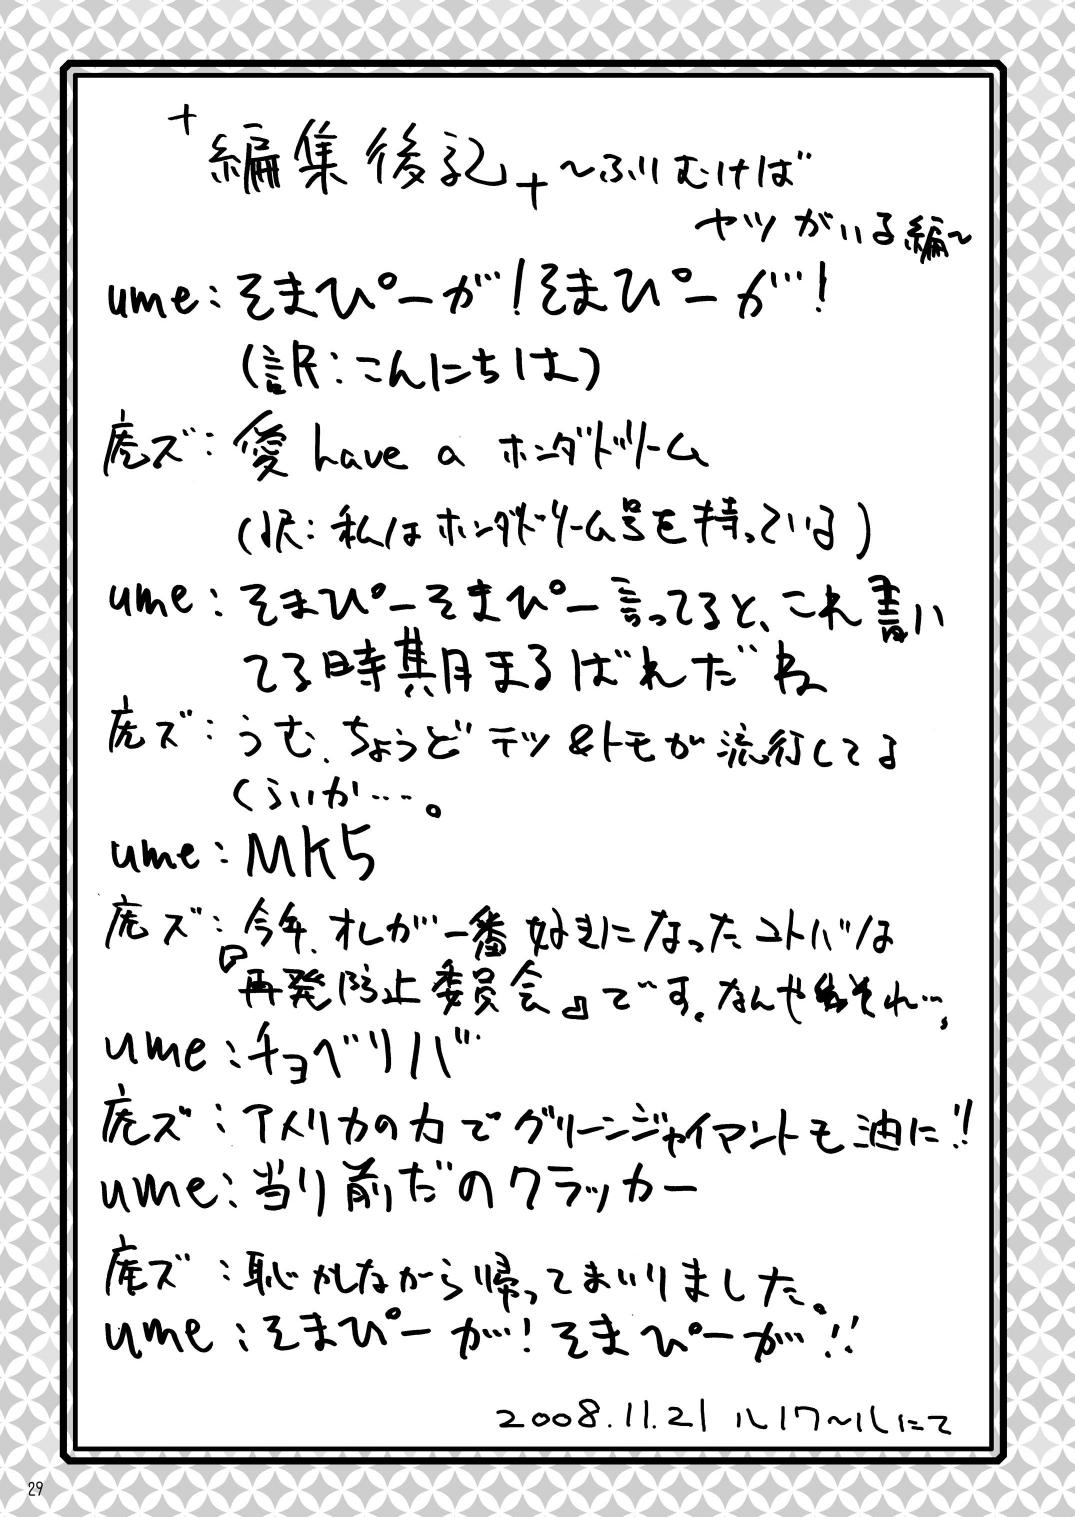 +編集後記+ ～ふりむけば
ヤツがいる編～
ume：そまぴーが！そまぴーが！
（訳：こんにちは）
虎ズ：愛 have a ホンダドリーム
（訳：私はホンダドリーム号を持っている）
ume：そまぴーそまぴー言ってると、これ書い
てる時期まるばれだね
虎ズ：うむ、ちょうどテツ&トモが流行してる
くらいか…。
ume：MK5
虎ズ：今年、オレが一番好きになったコトバは
『再発防止委員会』です。なんやそれ…。
ume：チョベリバ
虎ズ：アメリカの力でグリーンジャイアントも油に!!
ume：当り前だのクラッカー
虎ズ：恥かしながら帰ってまいりました。
ume：そまぴーが！そまぴーが!!
2008.11.21 ルノワ～ルにて
29